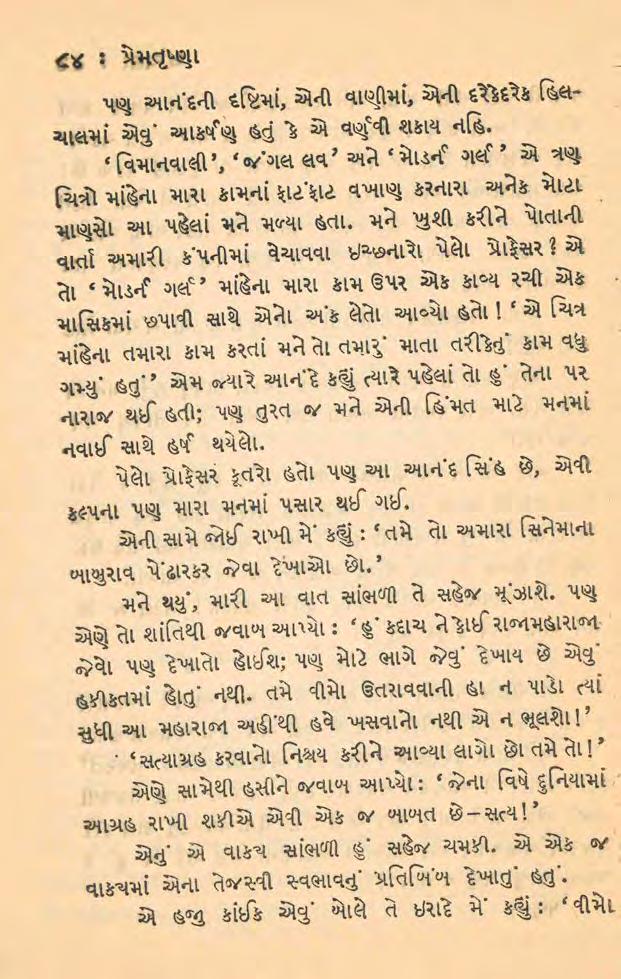 ૮૪ : પ્રેમતૃષ્ણા
પણ આનંદની દૃષ્ટિમાં, એની વાણીમાં, એની દરેકેદરેક હિલ-
ચાલમાં એવું આકર્ષણ હતું કે એ વર્ણવી શકાય નહિ.
‘વિમાનવાલી’, ‘જંગલ લવ’ અને ‘મોડર્ન ગર્લ’ એ ત્રણ
ચિત્રો માંહેના મારા કામનાં ફાટંફાટ વખાણ કરનારા અનેક મોટા
માણસો આ પહેલાં મને મળ્યા હતા. મને ખુશી કરીને પોતાની
વાર્તા અમારી કંપનીમાં વેચાવવા ઇચ્છનારો પેલો પ્રોફેસર? એ
તો ‘મોડર્ન ગર્લ’ માંહેના મારા કામ ઉપર એક કાવ્ય રચી એક
માસિકમાં છપાવી સાથે એનો અંક લેતો આવ્યો હતો! ‘એ ચિત્ર
માંહેના તમારા કામ કરતાં મને તો તમારું માતા તરીકેનું કામ વધુ
ગમ્યું હતું’ એમ જ્યારે આનંદે કહ્યું ત્યારે પહેલાં તો હું તેના પર
નારાજ થઈ હતી; પણ તુરત જ મને એની હિંમત માટે મનમાં
નવાઈ સાથે હર્ષ થયેલો.
પેલો પ્રોફેસર કૂતરો હતો પણ આ આનંદ સિંહ છે, એવી
કલ્પના પણ મારા મનમાં પસાર થઈ ગઈ.
એની સામે જોઈ રાખી મેં કહ્યું : ‘તમે તો અમારા સિનેમાના
બાબુરાવ પેંઢારકર જેવા દેખાઓ છો.’
મને થયું, મારી આ વાત સાંભળી તે સહેજ મૂંઝાશે. પણ
એણે તો શાંતિથી જવાબ આપ્યો : ‘હું કદાચ ને કોઈ રાજામહારાજા
જેવો પણ દેખાતો હોઈશ; પણ મોટે ભાગે જેવું દેખાય છે એવું
હકીકતમાં હોતું નથી. તમે વીમો ઉતરાવવાની હા ન પાડો ત્યાં
સુધી આ મહારાજા અહીંથી હવે ખસવાનો નથી એ ન ભૂલશો!’
‘સત્યાગ્રહ કરવાનો નિશ્ચય કરીને આવ્યા લાગો છો તમે તો!’
એણે સામેથી હસીને જવાબ આપ્યો : ‘જેના વિષે દુનિયામાં
આગ્રહ રાખી શકીએ એવી એક જ બાબત છે – સત્ય!’
એનું એ વાક્ય સાંભળી હું સહેજ ચમકી. એ એક જ
વાક્યમાં એના તેજસ્વી સ્વભાવનું પ્રતિબિંબ દેખાતું હતું.
એ હજી કાંઈક એવું બોલે તે ઇરાદે મેં કહ્યું : ‘વીમો